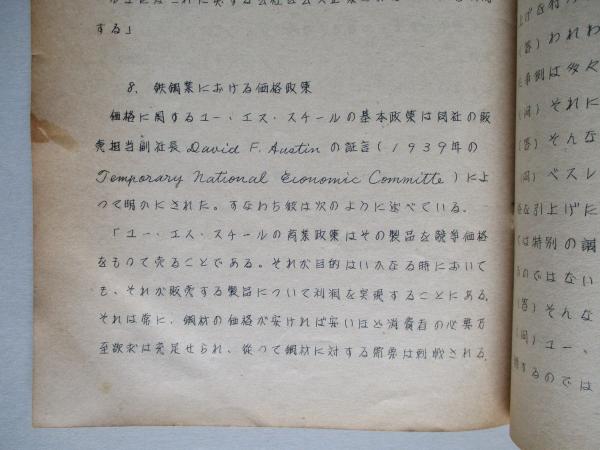 する」
8. 鉄鋼業における価格政策
価格に関するユー・エス・スチールの基本政策は同社の販
売担当副社長 David F. Austin の証言(1939年の
Temporary National Economic Committe)によ
つて明かにされた。すなわち彼は次のように述べている。
「ユー・エス・スチールの商業政策はその製品を競争価格
をもつて売ることである。それが目的はいかなる時において
も、それが販売する製品について利潤を実現することにある。
それは常に、鋼材の価格が安ければ安いほど消費者の必要乃
至欲求は充足せられ、従つて鋼材に対する需要は刺戟される。
(答)われわ
事例は多々
(問)それに
(答)そんな
(問)ベスレ
を引上げに
は特別の調
るのではない
(答)そんな
(問)ユー、
するのでは